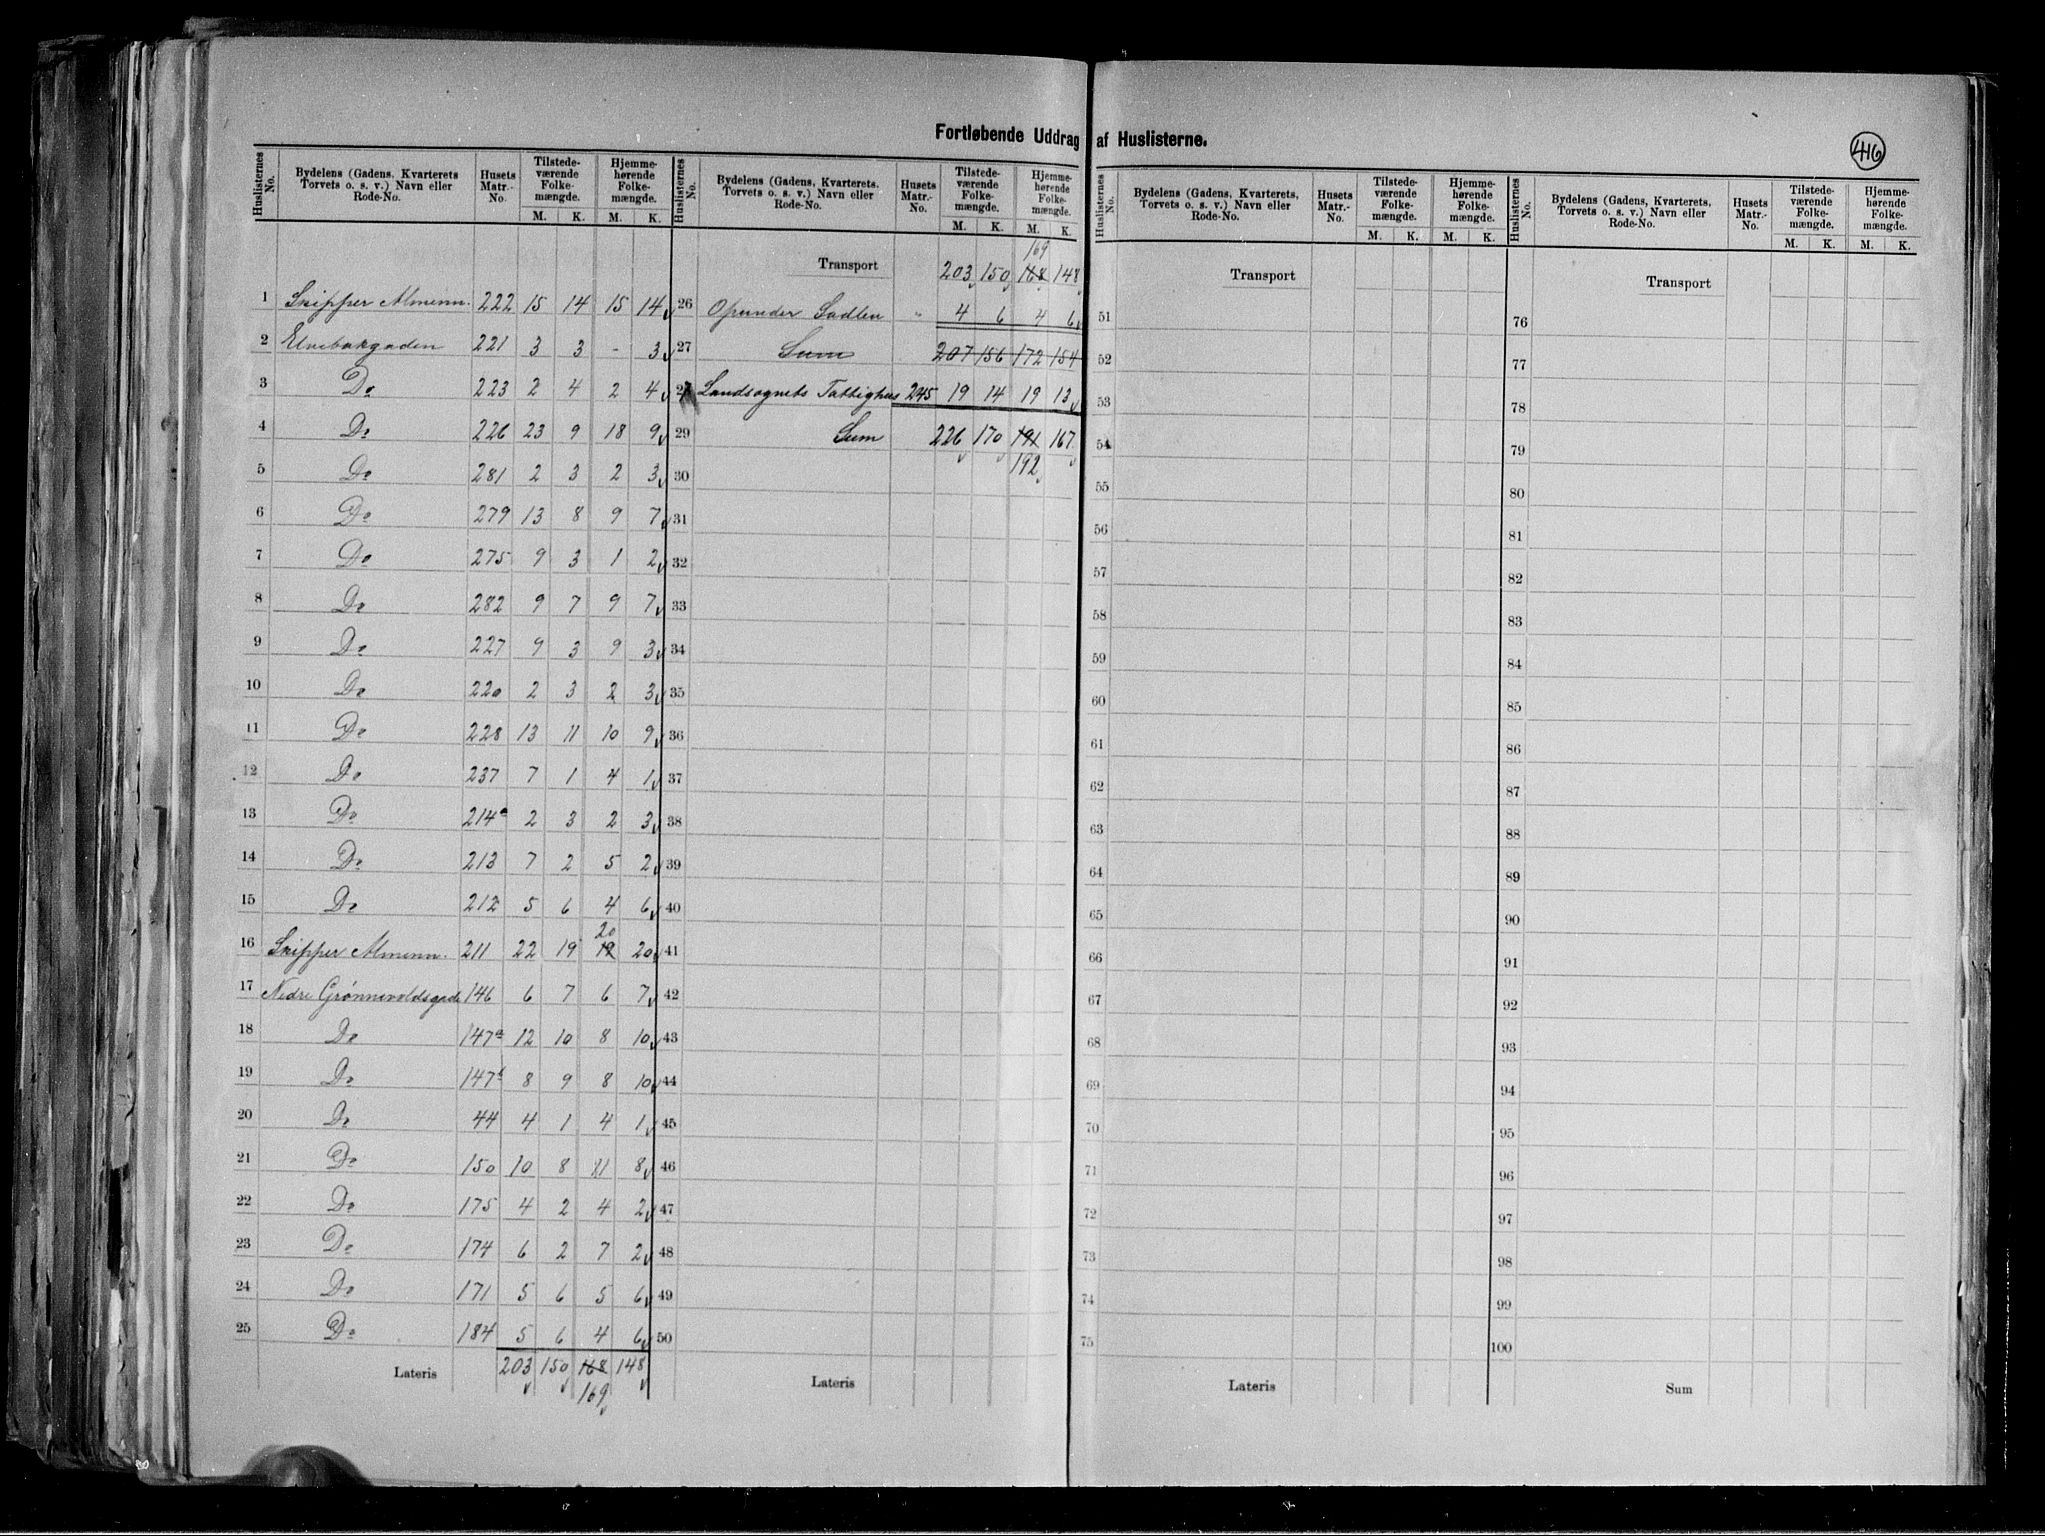 Fortløbende Uddrag af Huslisterne.
416
Huslisternes No. | Bydelens (Gadens, Kvarterets Torvets o. s. v.) Navn eller Rode-No. | Husets Matr.-No. | Tilstedeværende Folkemængde. M. K. | Hjemmehørende Folkemængde. M. K.
1 Snipper Almenn. 222 15 14 15 14
2 Elvebakgaden 221 3 3 - 3
3 Do 223 2 4 2 4
4 Do 226 23 9 18 9
5 Do 281 2 3 2 3
6 Do 279 13 8 9 7
7 Do 275 9 3 1 2
8 Do 282 9 7 9 7
9 Do 227 9 3 9 3
10 Do 220 2 3 2 3
11 Do 228 13 11 10 9
12 Do 237 7 1 4 1
13 Do 214a 2 3 2 3
14 Do 213 7 2 5 2
15 Do 212 5 6 4 6
20
16 Snipper Almenn. 211 22 19 19 20
17 Nedre Grønnevoldsgade 146 6 7 6 7
18 Do 147a 12 10 8 10
19 Do 147 8 9 8 10
20 Do 44 4 1 4 1
21 Do 150 10 8 11 8
22 Do 175 4 2 4 2
23 Do 174 6 2 7 2
24 Do 171 5 6 5 6
25 Do 184 5 6 4 6
Lateris 203 150 168 148
169
Huslisternes No. | Bydelens (Gadens, Kvarterets, Torvets o. s. v.) Navn eller Rode-No. | Husets Matr.-No. | Tilstedeværende Folkemængde. M. K. | Hjemmehørende Folkemængde. M. K.
169
Transport 203 150 168 148
26 Opunder Sadlen " 4 6 4 6
27 Sum 207 156 172 154
28 Landsognets Fattighus 245 19 14 19 13
29 Sum 226 170 191 167
30 192
31
32
33
34
35
36
37
38
39
40
41
42
43
44
45
46
47
48
49
50
Lateris
Huslisternes No. | Bydelens (Gadens, Kvarterets Torvets o. s. v.) Navn eller Rode-No. | Husets Matr.-No. | Tilstedeværende Folkemængde. M. K. | Hjemmehørende Folkemængde. M. K.
Transport
51
52
53
54
55
56
57
58
59
60
61
62
63
64
65
66
67
68
69
70
71
72
73
74
75
Lateris
Huslisternes No. | Bydelens (Gadens, Kvarterets, Torvets o. s. v.) Navn eller Rode-No. | Husets Matr.-No. | Tilstedeværende Folkemængde. M. K. | Hjemmehørende Folkemængde. M. K.
Transport
76
77
78
79
80
81
82
83
84
85
86
87
88
89
90
91
92
93
94
95
96
97
98
99
100
Sum